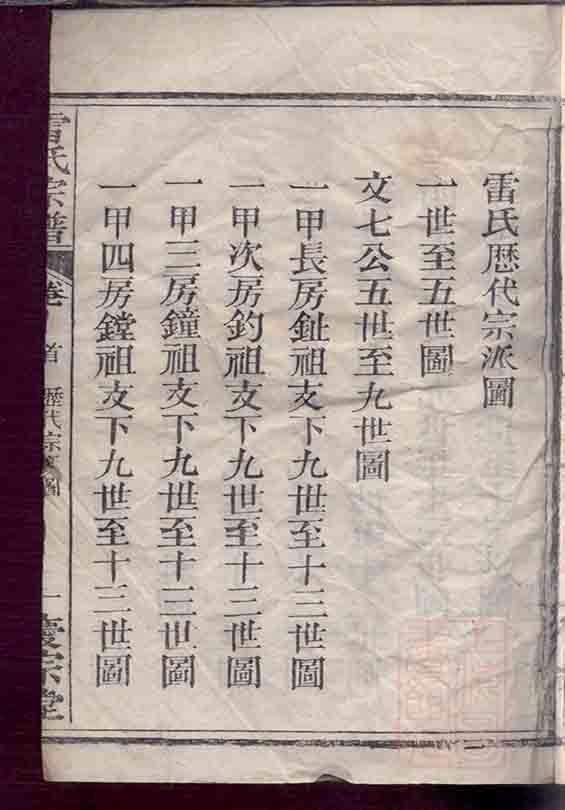 雷氏歷代宗派圖
一世至五世圖
文七公五世至九世圖
一甲長房鉦祖支下九世至十三世圖
一甲次房釣祖支下九世至十三世圖
一甲三房鐘祖支下九世至十三世圖
一甲四房鏜祖支下九世至十三世圖
雷氏宗譜
卷
首
歷代宗派圖
一
慶宗堂